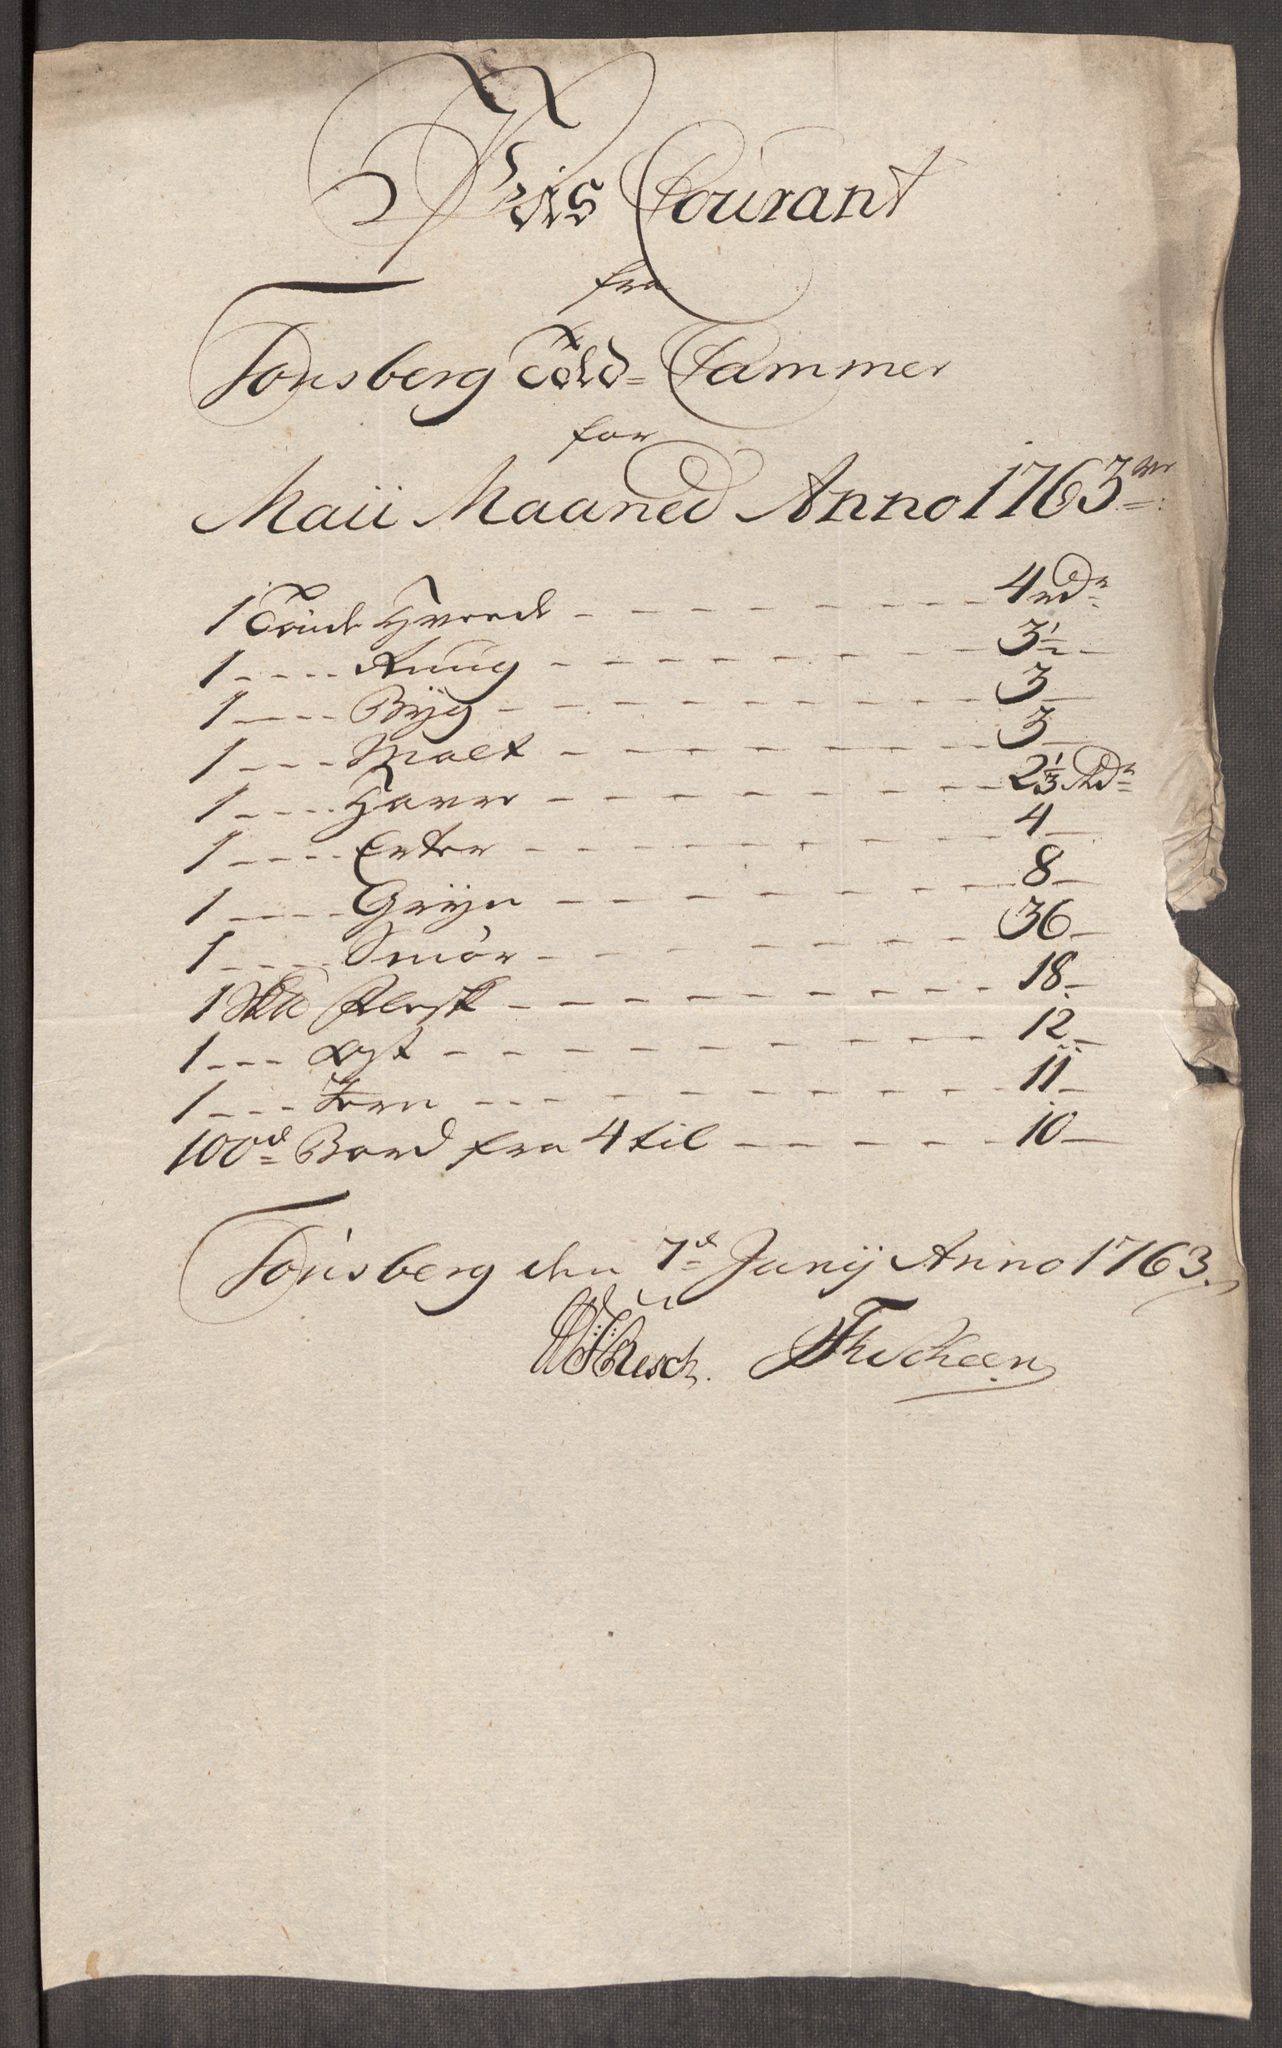 Priis Courant
fra
Tønsberg Told-Cammer
for
Maii Maaned Anno 1763
1 Tønde Hvede - - - - 4 rdr
1 - - - - Ruug - - - - 3 1/2 -
1 - - - - Byg - - - - 3 -
1 - - - - Malt - - - - 3 -
1 - - - - Havre - - - - 2 1/3 Rdr
1 - - - - Erter - - - - 4 -
1 - - - - Gryn - - - - 8 -
1 - - - - Smör - - - - 36 -
1 Skd Flesk - - - - 18 -
1 - - - Lyst - - - - 12 -
1 - - - Jern - - - - 11 -
100d Bord fra 4 til - - - - 10 -
Tønsberg den 7d Junij Anno 1763.
Resch. Scheen